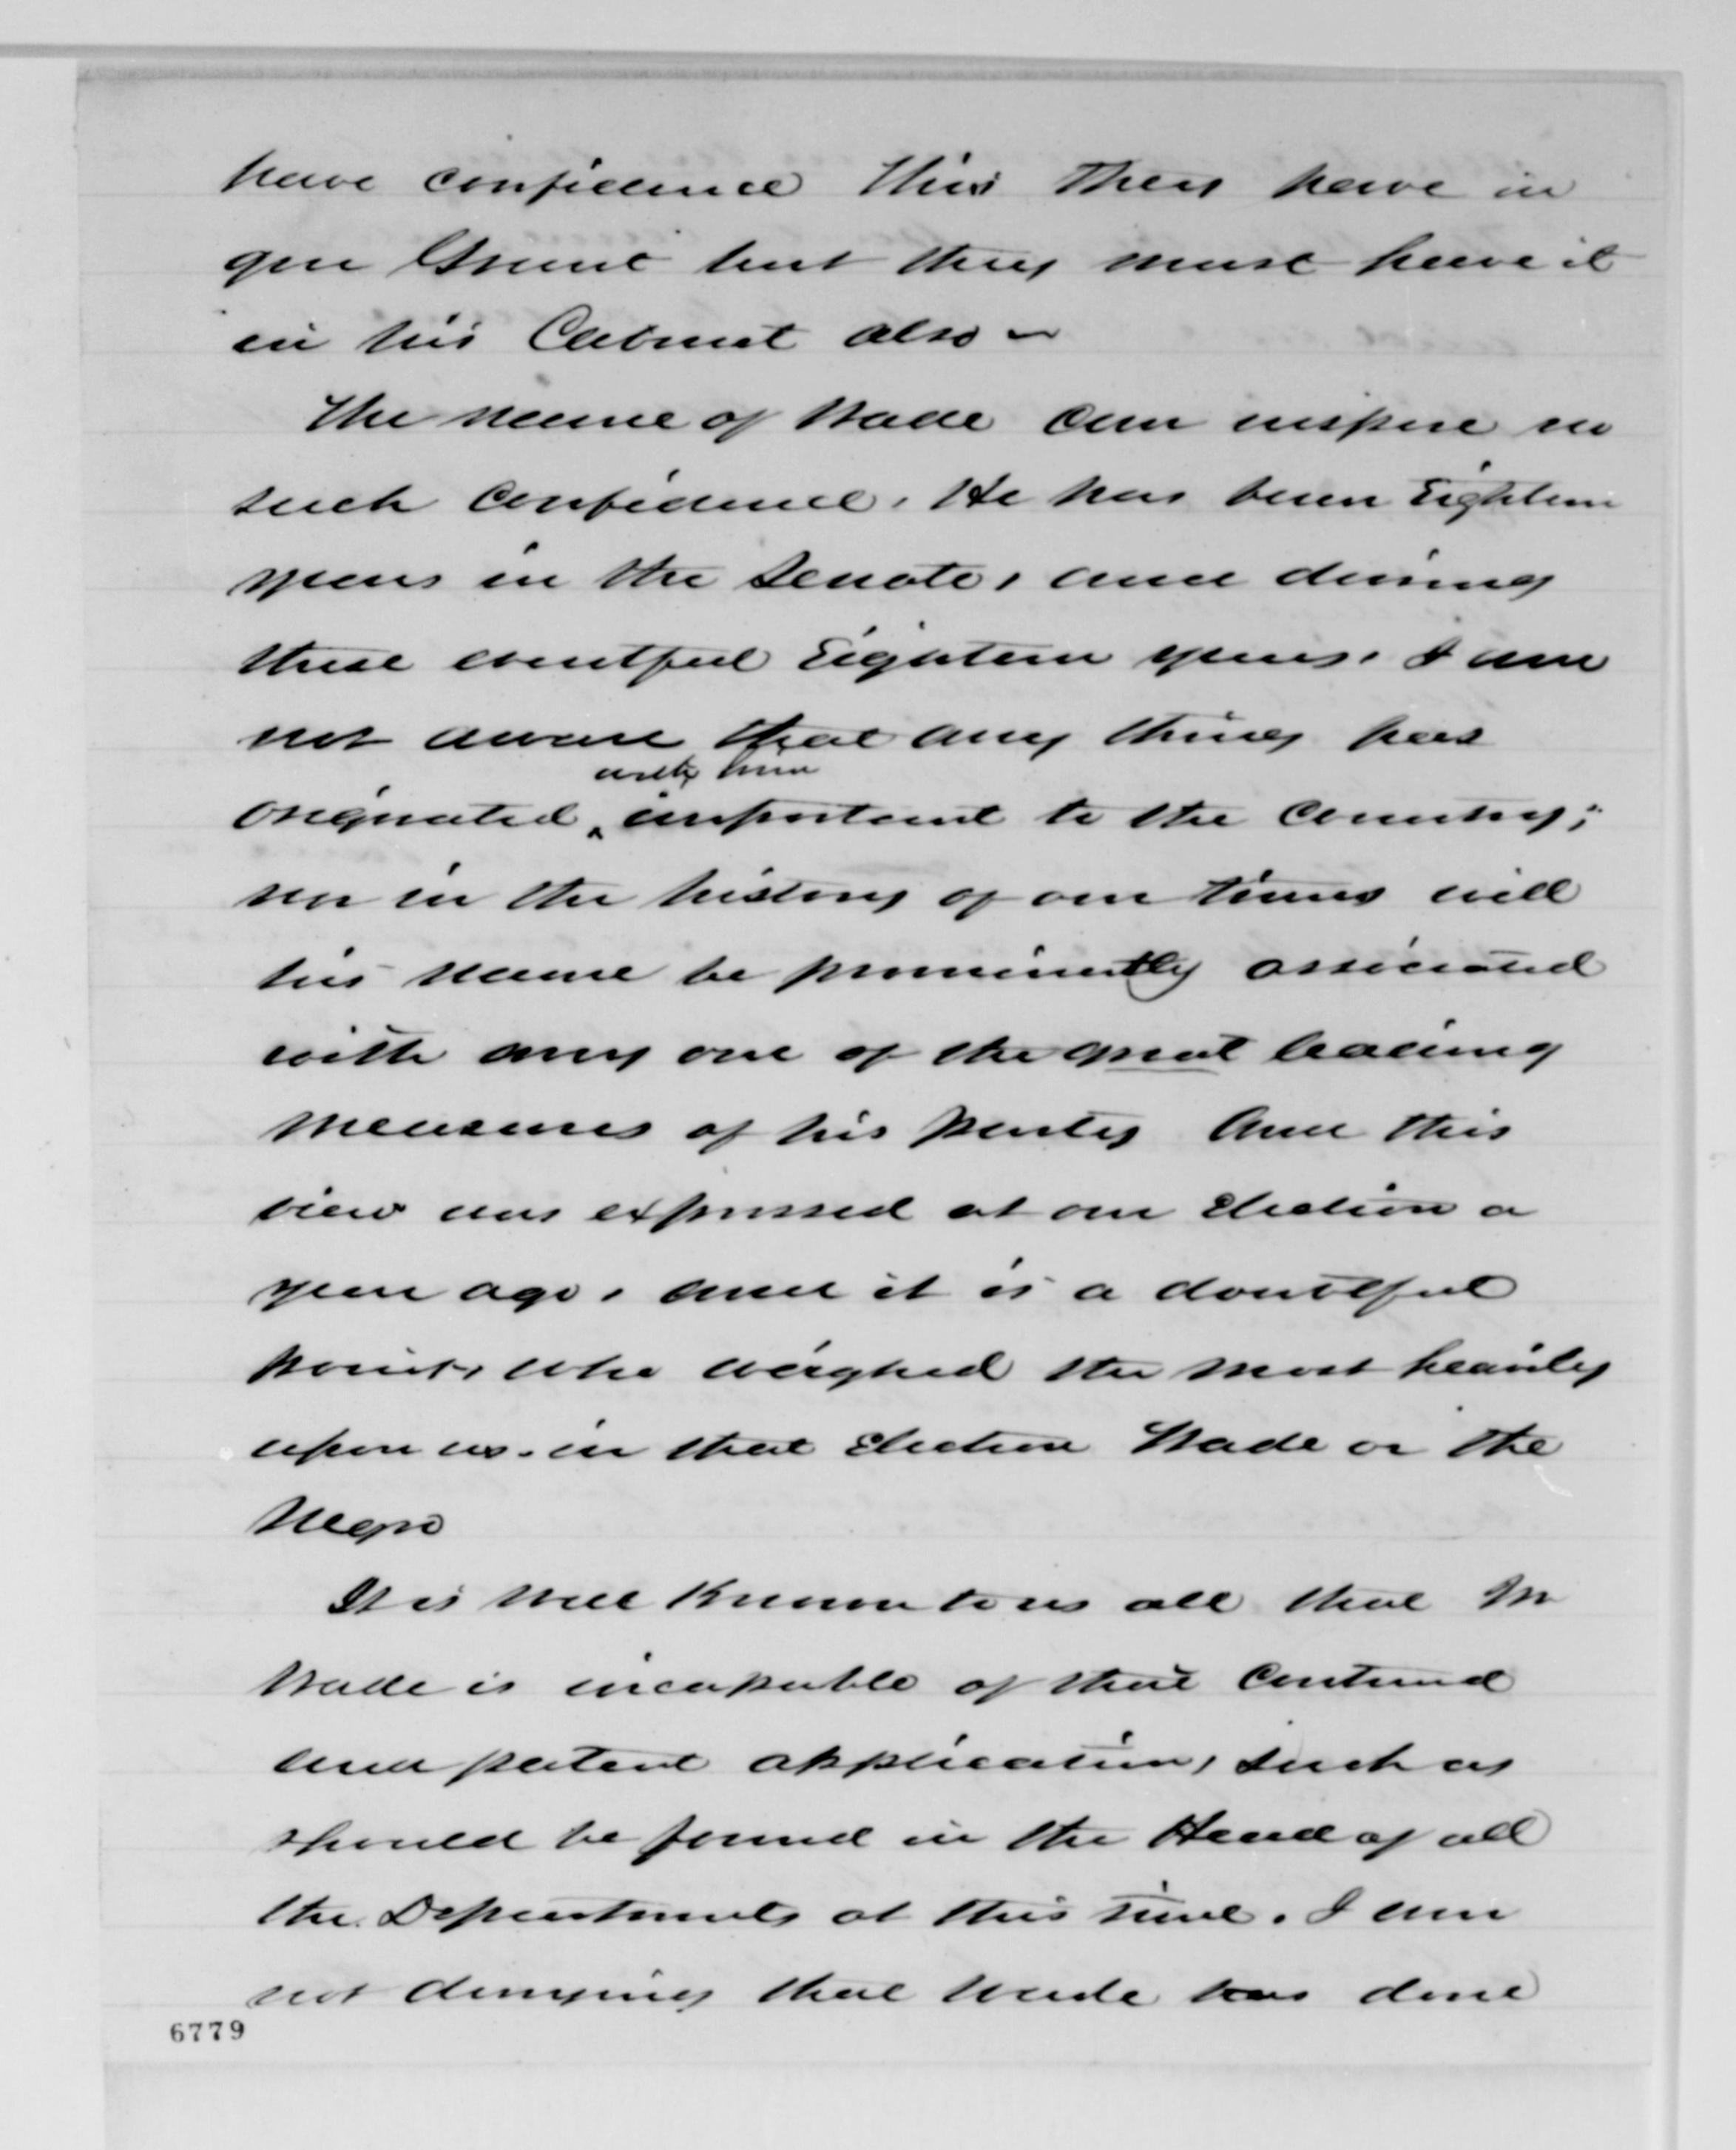 have confidence this they have in
gen Grant but they must have it
in his Cabinet also –
The name of Wade can inspire no
such confidence, He has been Eighteen
years in the Senate, and during
these eventful Eighteen years, I am
not aware that any thing has
with him
originated ‸ important to the Country;
nor in the history of our times will
his name be prominently associated
with any one of the great leading
measures of his party And this
view was expressed at our Election a
year ago, and it is a doubtful
point, who weighed the most heavily
upon us. in that Election Wade or the
Negro
It is well known to us all that Mr
Wade is incapable of that continued
and patient application, such as
should be found in the Head of all
the Departments at this time. I am
not denying that Wade has done
6779